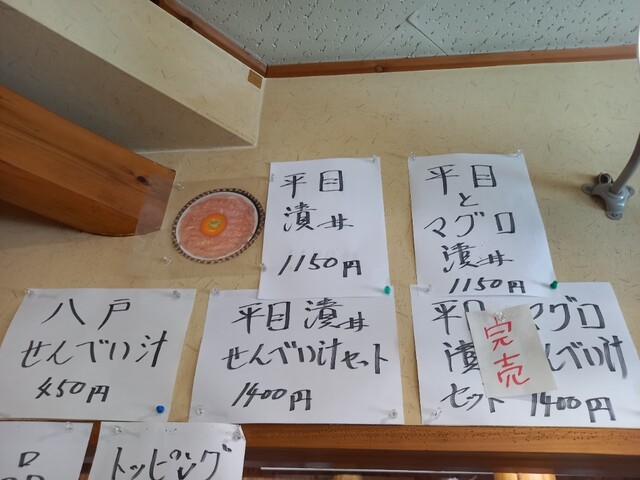 平目
漬丼
1150円
平目
と
マグロ
漬丼
1150円
八戸
せんべい汁
450円
平目漬丼
せんべい汁セット
1400円
マグロ
漬
んべい汁
セット 1400円
完売
品
トッピング